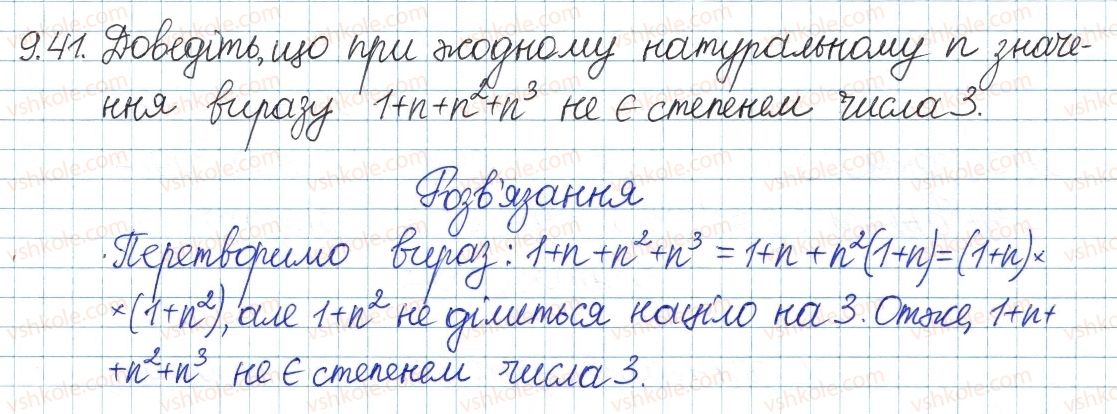 9.41. Доведіть, що при жодному натуральному n значе-
ння виразу 1+n+n²+n³ не є степенем числа 3.
Розв'язання
Перетворимо вираз: 1+n+n²+n³ = 1+n+n²(1+n)=(1+n)×
×(1+n²), але 1+n² не ділиться націло на 3. Отже, 1+n+
+n²+n³ не є степенем числа 3.
vshkole.com